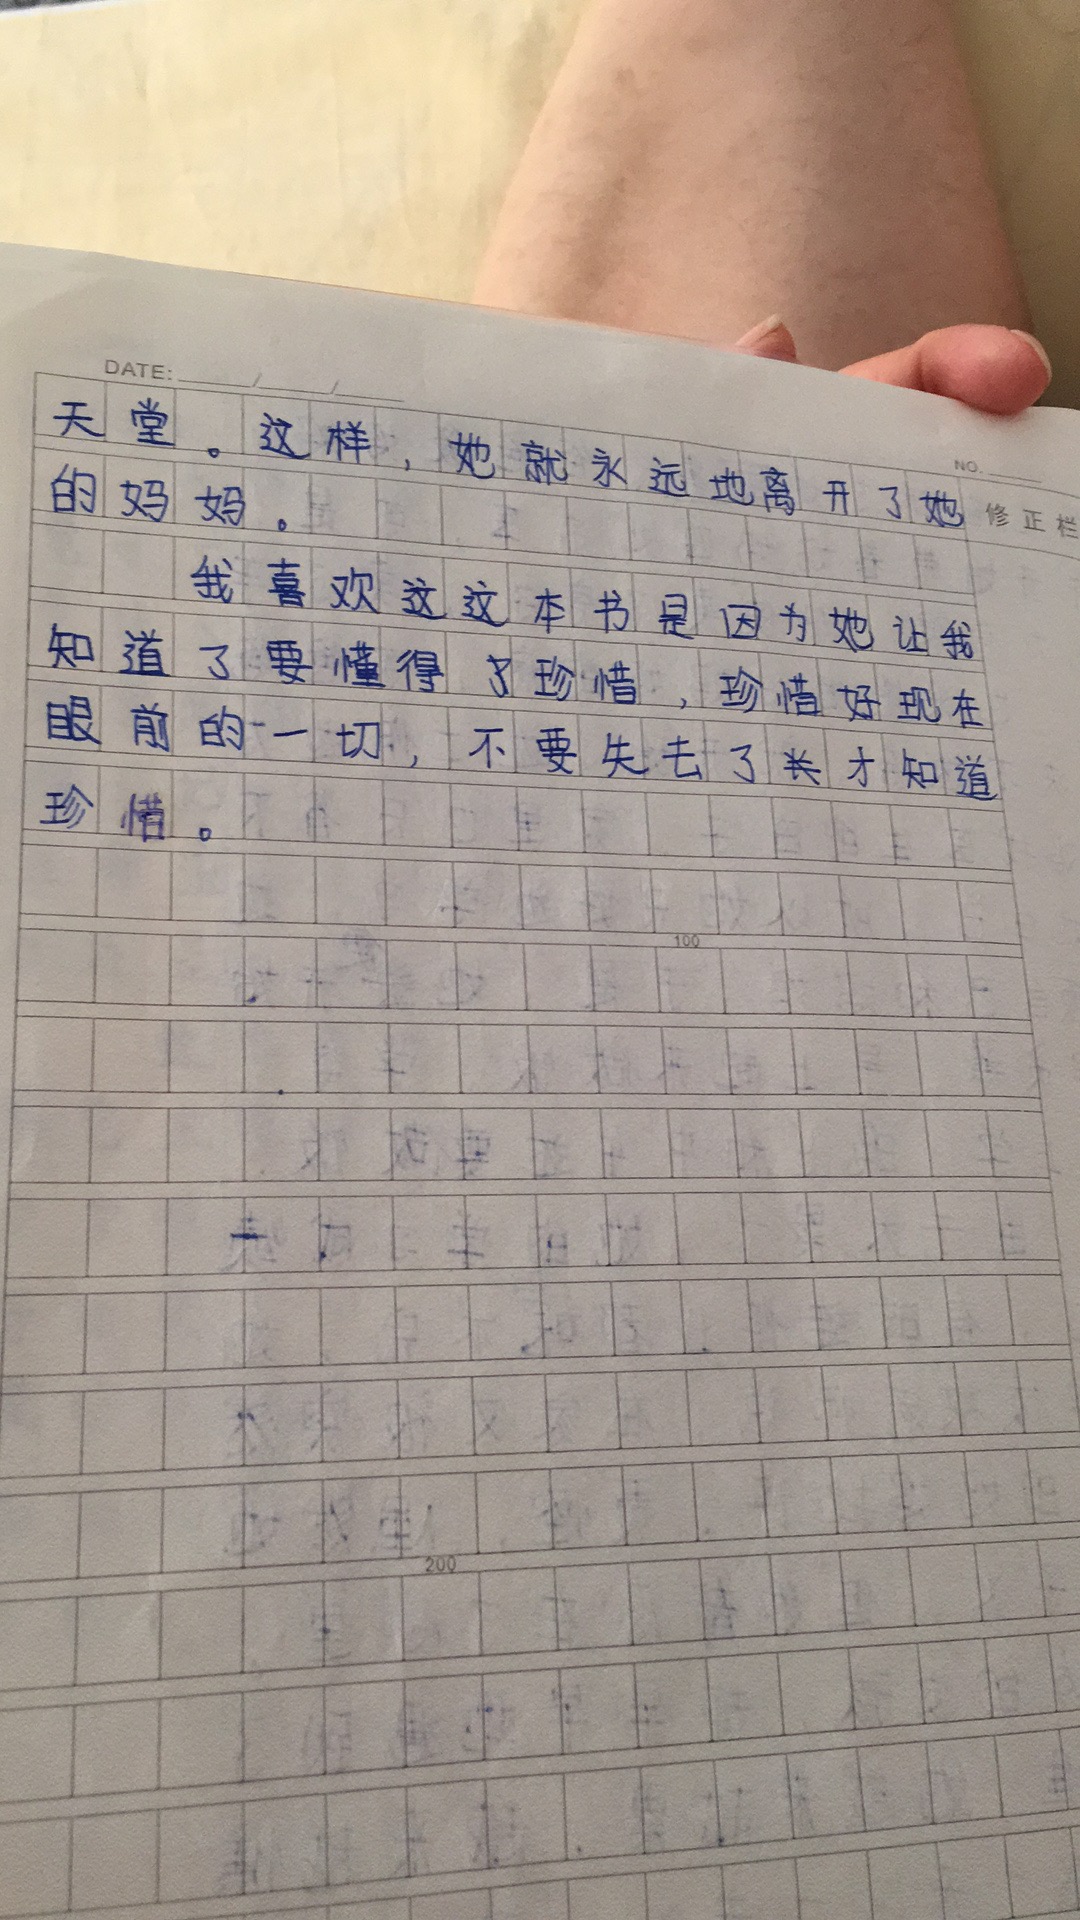 DATE: ____/____/____
NO. ____
天堂。这样，她就永远地离开了她
修正栏
的妈妈。
我喜欢这这本书是因为她让我
知道了要懂得了珍惜，珍惜好现在
眼前的一切，不要失去了长才知道
珍惜。
100
200